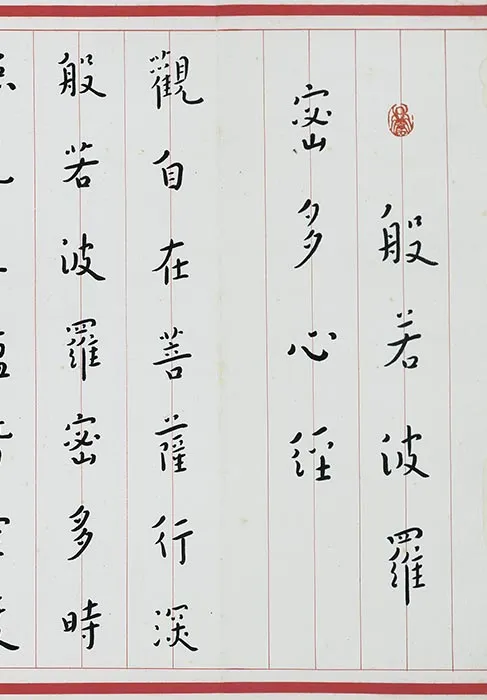 般若波羅
密多心経
觀自在菩薩行深
般若波羅密多時